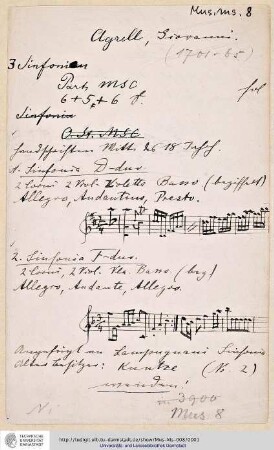 Mus. ms. 8
Agrell, Giovanni.
(1701-65)
3 Sinfonien
Part. MSC
6 + 5 + 6 f.
Sinfonia
O. St. MSC
Handschriften Mitte des 18 Jahrh.
1. Sinfonia D-dur.
2 Corni, 2 Viol. Violetta Basso (beziffert)
Allegro, Andantino, Presto.
2. Sinfonia F-dur.
2 Corni, 2 Viol. Vla Basso. (bez)
Allegro, Andante, Allegro.
Angefügt an Lampugnani Sinfonie
Alter Besitzer: Kuntze (N. 2)
wenden!
3900
Mus. 8
Universitäts- und Landesbibliothek Darmstadt